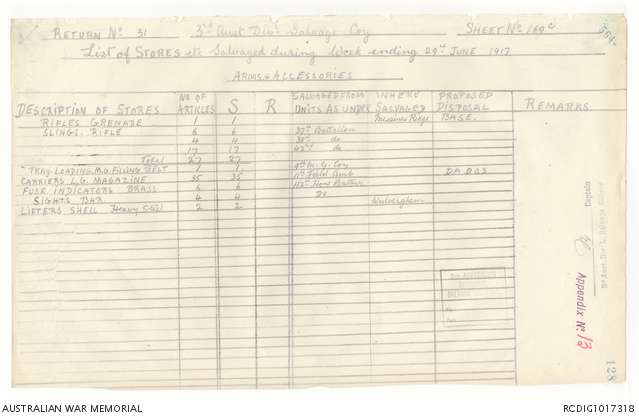 RETURN No 31 3rd Aust Divl Salvage Coy SHEET No 169c
List of STORES etc Salvaged during Week ending 29th JUNE 1917
ARMS & ACCESSORIES
DESCRIPTION OF STORES No OF ARTICLES S R SALVAGED FROM UNITS AS UNDER WHERE SALVAGED PROPOSED DISPOSAL REMARKS
RIFLES GRENADE 1 1 Messines Ridge BASE.
SLINGS RIFLE 6 6 37th Battalion
4 4 38th do
17 17 42nd do
Total 27 27
TRAY LOADING M.G. FILLING BELT 1 1 9th M.G. Coy
CARRIERS L.G. MAGAZINE 35 35 11th Field Amb DADOS
FUSE INDICATORS BRASS 6 6 Howr Battery
SIGHTS BAR 4 4 Do
LIFTERS SHELL Heavy 2 2 Wulverghem
Captain
Appendix No 13
128
AUSTRALIAN WAR MEMORIAL RCDIG1017318